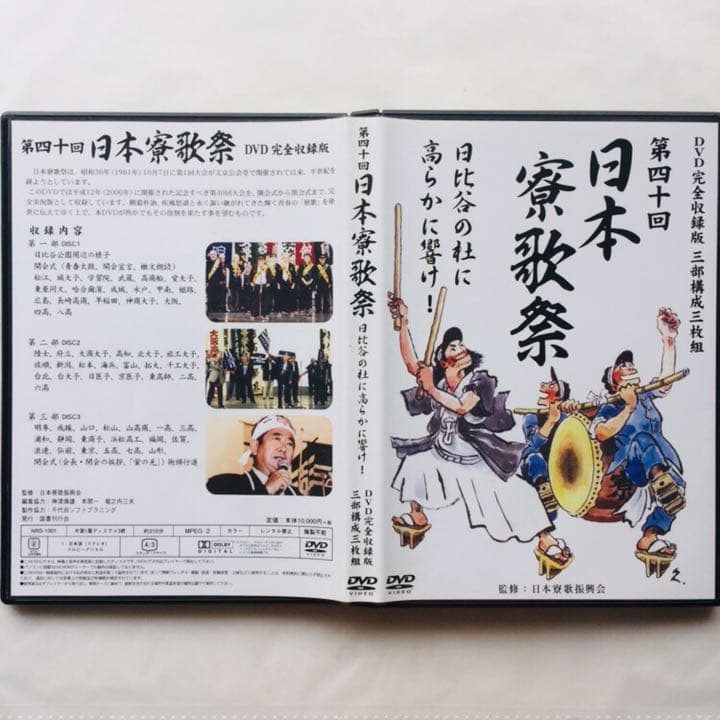 第四十回 日本寮歌祭 DVD 完全収録版
日本寮歌祭は、昭和36年(1961年)10月7日に第1回大会が文京公会堂で開催されて以来、半世紀を
終ようとしています。
このDVDでは平成12年(2000年)に開催された記念すべき第40回大会を、開会式から閉会式まで、完
全実況版として収録しています。
収録内容
第一部 DISC1
日比谷公園周辺の様子
開会式(青春太鼓、開会宣言、檄文朗読)
松江、城大予、学習院、武蔵、高商船、愛大予、
東亜同文、哈合爾濱、成城、水戸、甲南、姫路、
広島、長崎高商、早稲田、神商大予、大阪、
四高、八高
第二部 DISC2
陸士、府立、大商大予、高知、北大予、旅工大予、
旅順、新潟、松本、海兵、富山、拓大、千工大予、
台北、台大予、日医予、京医予、東高師、二高、
六高
第三部 DISC3
明専、成蹊、山口、松山、山高商、一高、三高、
浦和、静岡、東商予、浜松高工、福岡、佐賀、
浪速、弘前、東京、五高、七高、山形、
閉会式(会長・閉会の挨拶、「蛍の光」)街頭行進
監修:日本寮歌振興会
製作協力:千代田ソフトプランニング
発行:国書刊行会
定価:本体10,000円+税
NRS-1001
片面1層ディスク×3枚
約210分
MPEG-2
カラー
レンタル禁止
複製不能
2
1:日本語(ステレオ)
ドルビーデジタル
4:3
DOLBY
DIGITAL
DVD
VIDEO
第四十回 日本寮歌祭 日比谷の杜に高らかに響け! DVD完全収録版
三部構成三枚組
DVD
VIDEO
DVD完全収録版 三部構成三枚組
第四十回
日本
寮歌祭
日比谷の杜に
高らかに響け!
監修:日本寮歌振興会
DVD
VIDEO